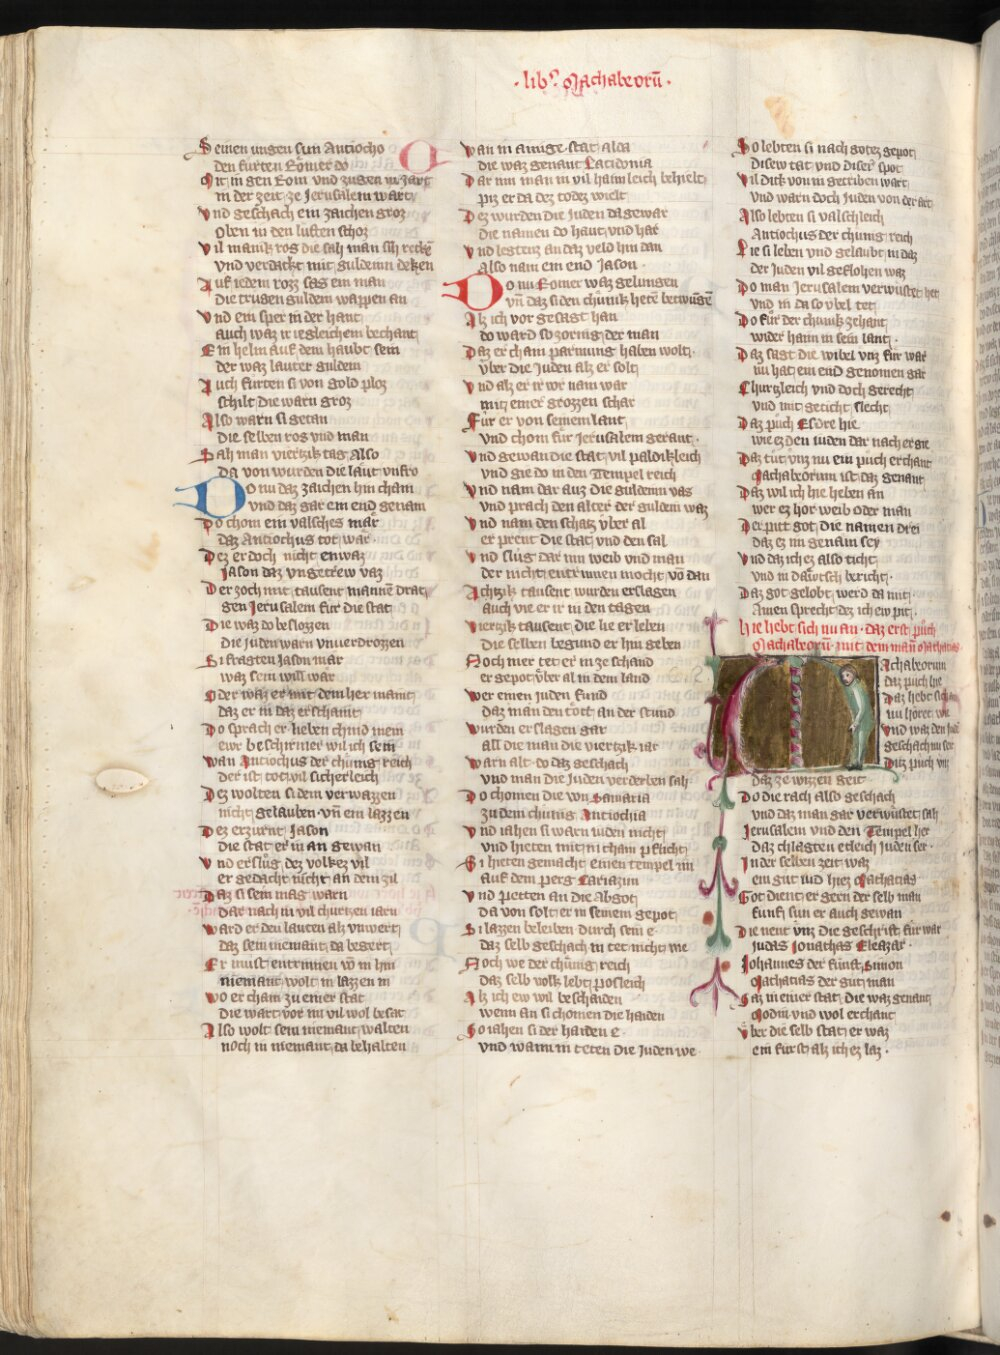 · lib? Machabeorū ·
Seinen iungen sun Antiocho
den furten Romer do
Mit in gen Rom und zugen in zart
in der zeit ze Jerusalem wart
Vnd geschach ein zaichen groz
Oben in den luften schoz
Vil manik ros die sah man sich recken
Vnd verdackt mit guldeinn deken
Auf iedem rozz saz ein man
die trugen guldein wappen an
Vnd ein sper in der hant
auch waz ir iegleichem bechant
Ein helm auf dem haubt sein
der waz lauter guldein
Auch furten si von gold ploz
schilt die warn groz
Also warn si getan
die selben ros und man
Sah man viertzik tag also
da von wurden die laut unfro
Do nu daz zaichen hin cham
Vnd daz gar ein end genam
Do chom ein valsches mär
daz Antiochus tot wär
Dez er doch nicht enwaz
Jason daz ungetrew vaz
Der zoch mit tausent mannen drat
gen Jerusalem fur die stat
Die waz do beslozzen
die juden warn unverdrozzen
Si fragten Jason mär
waz sein will wär
Oder waz er mit dem her maint
daz er in daz erschaint
Do sprach er lieben chind mein
ewr beschirmer wil ich sein
Wan Antiochus der chunig reich
der ist tot vil sicherleich
Dez wolten si dem verwazzen
nicht gelauben vn̄ ein lazzen
Dez erzurnt Jason
die stat er in an gewan
Vnd erslug dez volkez vil
er gedacht nicht an dem zil
Daz si sein mag warn
dar nach in vil churtzen iarn
Ward er den lauten alz unwert
daz sein niemant da begert
Er must entrinnen vo in hin
niemant wolt in lazzen in
Wo er cham zu einer stat
die wart vor im vil wol besat
Also wolt sein niemant walten
noch in niemant da behalten
Van in ainige stat alda
die waz genant Lacidonia
Dar inn man in vil haimleich behielt
piz er da dez todez wielt
Dez wurden die Juden da gewar
die namen do haut und har
Vnd legtenz an daz veld hin dan
Also nam ein end Jason ·
Do nu Romer waz gelungen
Vn̄ daz si den chunik hetē betwungē
Alz ich vor gesagt han
do ward so zornig der man
Daz er cham parmung haben wolt
Vber die Juden alz er solt
Vnd alz er ir we nam war
mit einer grozzen schar
Fur er von seinem lant
Vnd chom fur Jerusalem gerant ·
Vnd gewan die stat vil paldikleich
Vnd gie do in den Tempel reich
Vnd nam dar auz die guldeinn vas
Vnd prach den alter der guldein waz
Vnd nam den schatz vber al
er prent die stat und den sal
Vnd slug dar inn weib und man
der nicht entrinnen mocht vō dan
Achtzik tausent wurden erslagen
auch vie er ir in den tagen
Viertzik tausent die lie er leben
die selben begund er hin geben
Noch mer tet er in ze schand
er gepot vber al in dem land
Wer einen juden fund
daz man den tott an der stund
Wurden erslagen gar
all die man die viertzik iar
Warn alt do daz geschach
Vnd man die Juden verderben sah
Do chomen die von Samaria
zu dem chunig Antiochia
Vnd iahen si warn iuden nicht
Vnd hieten mit in cham pflicht
Si hieten gemacht einen tempel in
auf dem perg Gariazim
Vnd petten an die abgot
da von solt er in seinem gepot
Si lazzen beleiben durch sein e
daz selb geschach in tet nicht we
Noch we der chunig reich
daz selb volk lebt posleich
Alz ich ew wil beschaiden
wenn an si chomen die haiden
So iahen si der haiden e ·
Vnd warn in teten die Juden we
So lebten si nach gotez gepot
Disew tat und diser spot
Vil dick von in getriben wart
Vnd warn doch Juden von der art
Also lebten si valschleich
Antiochus der chunig reich
Lie si leben und gelaubt in daz
der Juden vil geflohen waz
Do man Jerusalem verwustet het
Vnd in da so vbel tet
Do fur der chunik zehant
wider haim in sein lant ·
Daz sagt die wibel vns fur war
nu hat ein end genomen gar
Churtzleich und doch gerecht
Vnd mit geticht slecht
Daz puch Esdre hie
wie ez den iuden dar nach ergie
Daz tut vns nu ein puch erchant
Machabeorum ist daz genant
Daz wil ich hie heben an
wer ez hor weib oder man
Der pitt got die namen drei
daz ez im genaim sey
Vnd daz ich ez also ticht
Vnd in däutsch bericht ·
Daz got gelobt werd da mit
Amen sprecht dez ich ew pit ·
Hie hebt sich nu an · daz erst puch
Machabeorū · mit dem man Machatias
Machabeorum
daz puch hie
Daz hebt sich an
nu höret wie
Vnd waz den jud
geschach in ser
Ditz puch vns
daz ze wizzen geit
Do die rach also geschach
Vnd daz man gar verwustet sah
Jerusalem und den Tempel her
daz chlagten etleich juden ser ·
In der selben zeit waz
ein gut iud hiez Mathatias
Got dient er gern der selb man
funf sun er auch gewan
Die nent vns die geschrift fur war
Judas Jonathas Eleazar ·
Johannes der funft Simon
Mathatias der gut man
Saz in einer stat die waz genant
Modin und wol erchant
Vber die selb stat er waz
ein furst alz ich ez laz ·